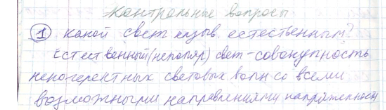 Контрольные вопросы
1 Какой свет назыв. естественным?
Естественный (неполяр) свет - совокупность
некогерентных световых волн со всеми
возможными направлениями напряженност